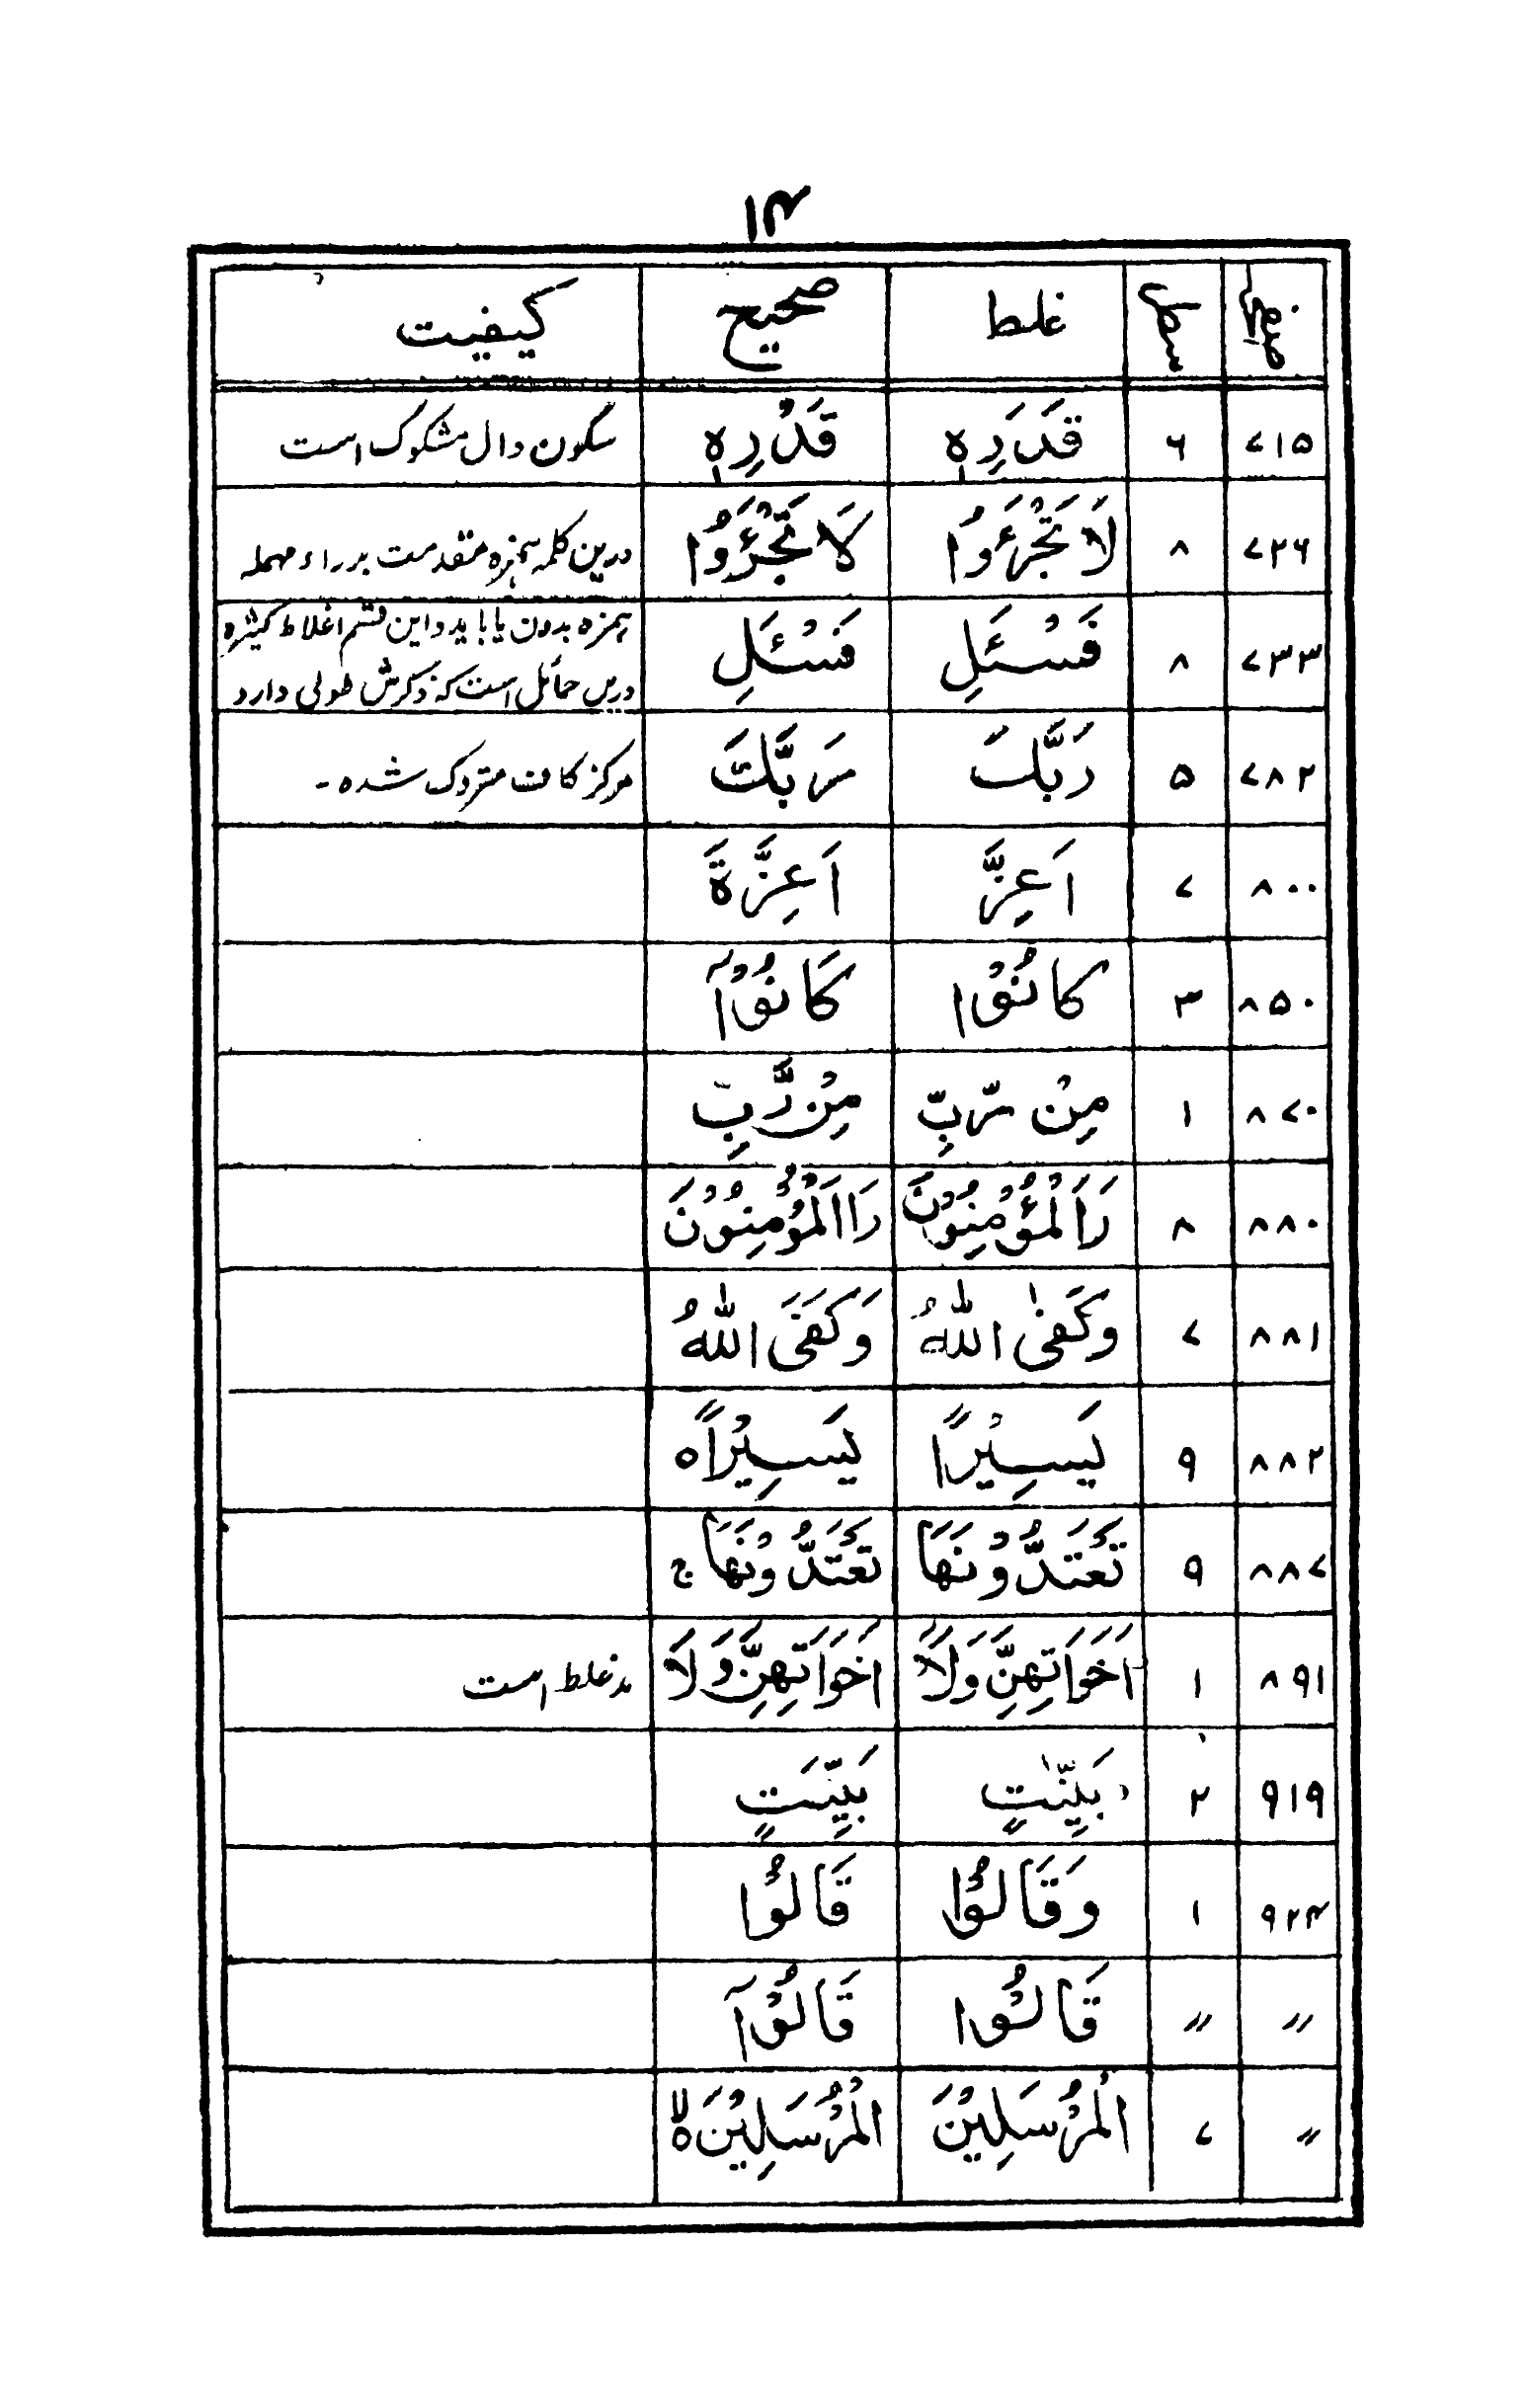 ۱۴
صفحہ سطر غلط صحیح کیفیت
۷۱۵ ۶ قَدَرِہٖ قَدْرِہٖ سکون دال مشکوک است
۷۲۶ ۸ لَا تَجْرَءُوا لَا تَجْئَرُوا درین کلمہ ہمزہ متقدمست بر راء مہملہ
۷۳۳ ۸ فَسْـَٔلِ فَسْـَٔلِ ہمزہ بدون یا باید و این قسم اغلاط کثیرہ
درین حمائل است کہ ذکرش طولی دارد
۷۸۲ ۵ رَبَّكَ رَبَّكَ مرکز کاف متروک شدہ۔
۸۰۰ ۷ اَعِزَّ اَعِزَّةَ
۸۵۰ ۳ کَانُوْا کَانُوْآ
۸۷۰ ۱ مِنْ رَّبِّ مِنْ رَّبِّ
۸۸۰ ۸ رَاَ لْمُؤْمِنُوْنَ رَاَ الْمُؤْمِنُوْنَ
۸۸۱ ۷ وَکَفٰی اللّٰهُ وَکَفَی اللّٰهُ
۸۸۲ ۹ یَسِیْرًا یَسِیْرًا ہ
۸۸۷ ۹ تَعْتَدُّوْنَهَا تَعْتَدُّوْنَهَا ج
۸۹۱ ۱ اَخَوَاتِهِنَّ وَلَآ اَخَوَاتِهِنَّ وَلَا مد غلط است
۹۱۹ ۲ بَیِّنٰتٍ بَیِّنَتٍ
۹۲۴ ۱ وَقَالُوْا قَالُوْا
〃 〃 قَالُوْا قَالُوْآ
〃 ۷ الْمُرْسَلِیْنَ الْمُرْسَلِیْنَ ہ لا